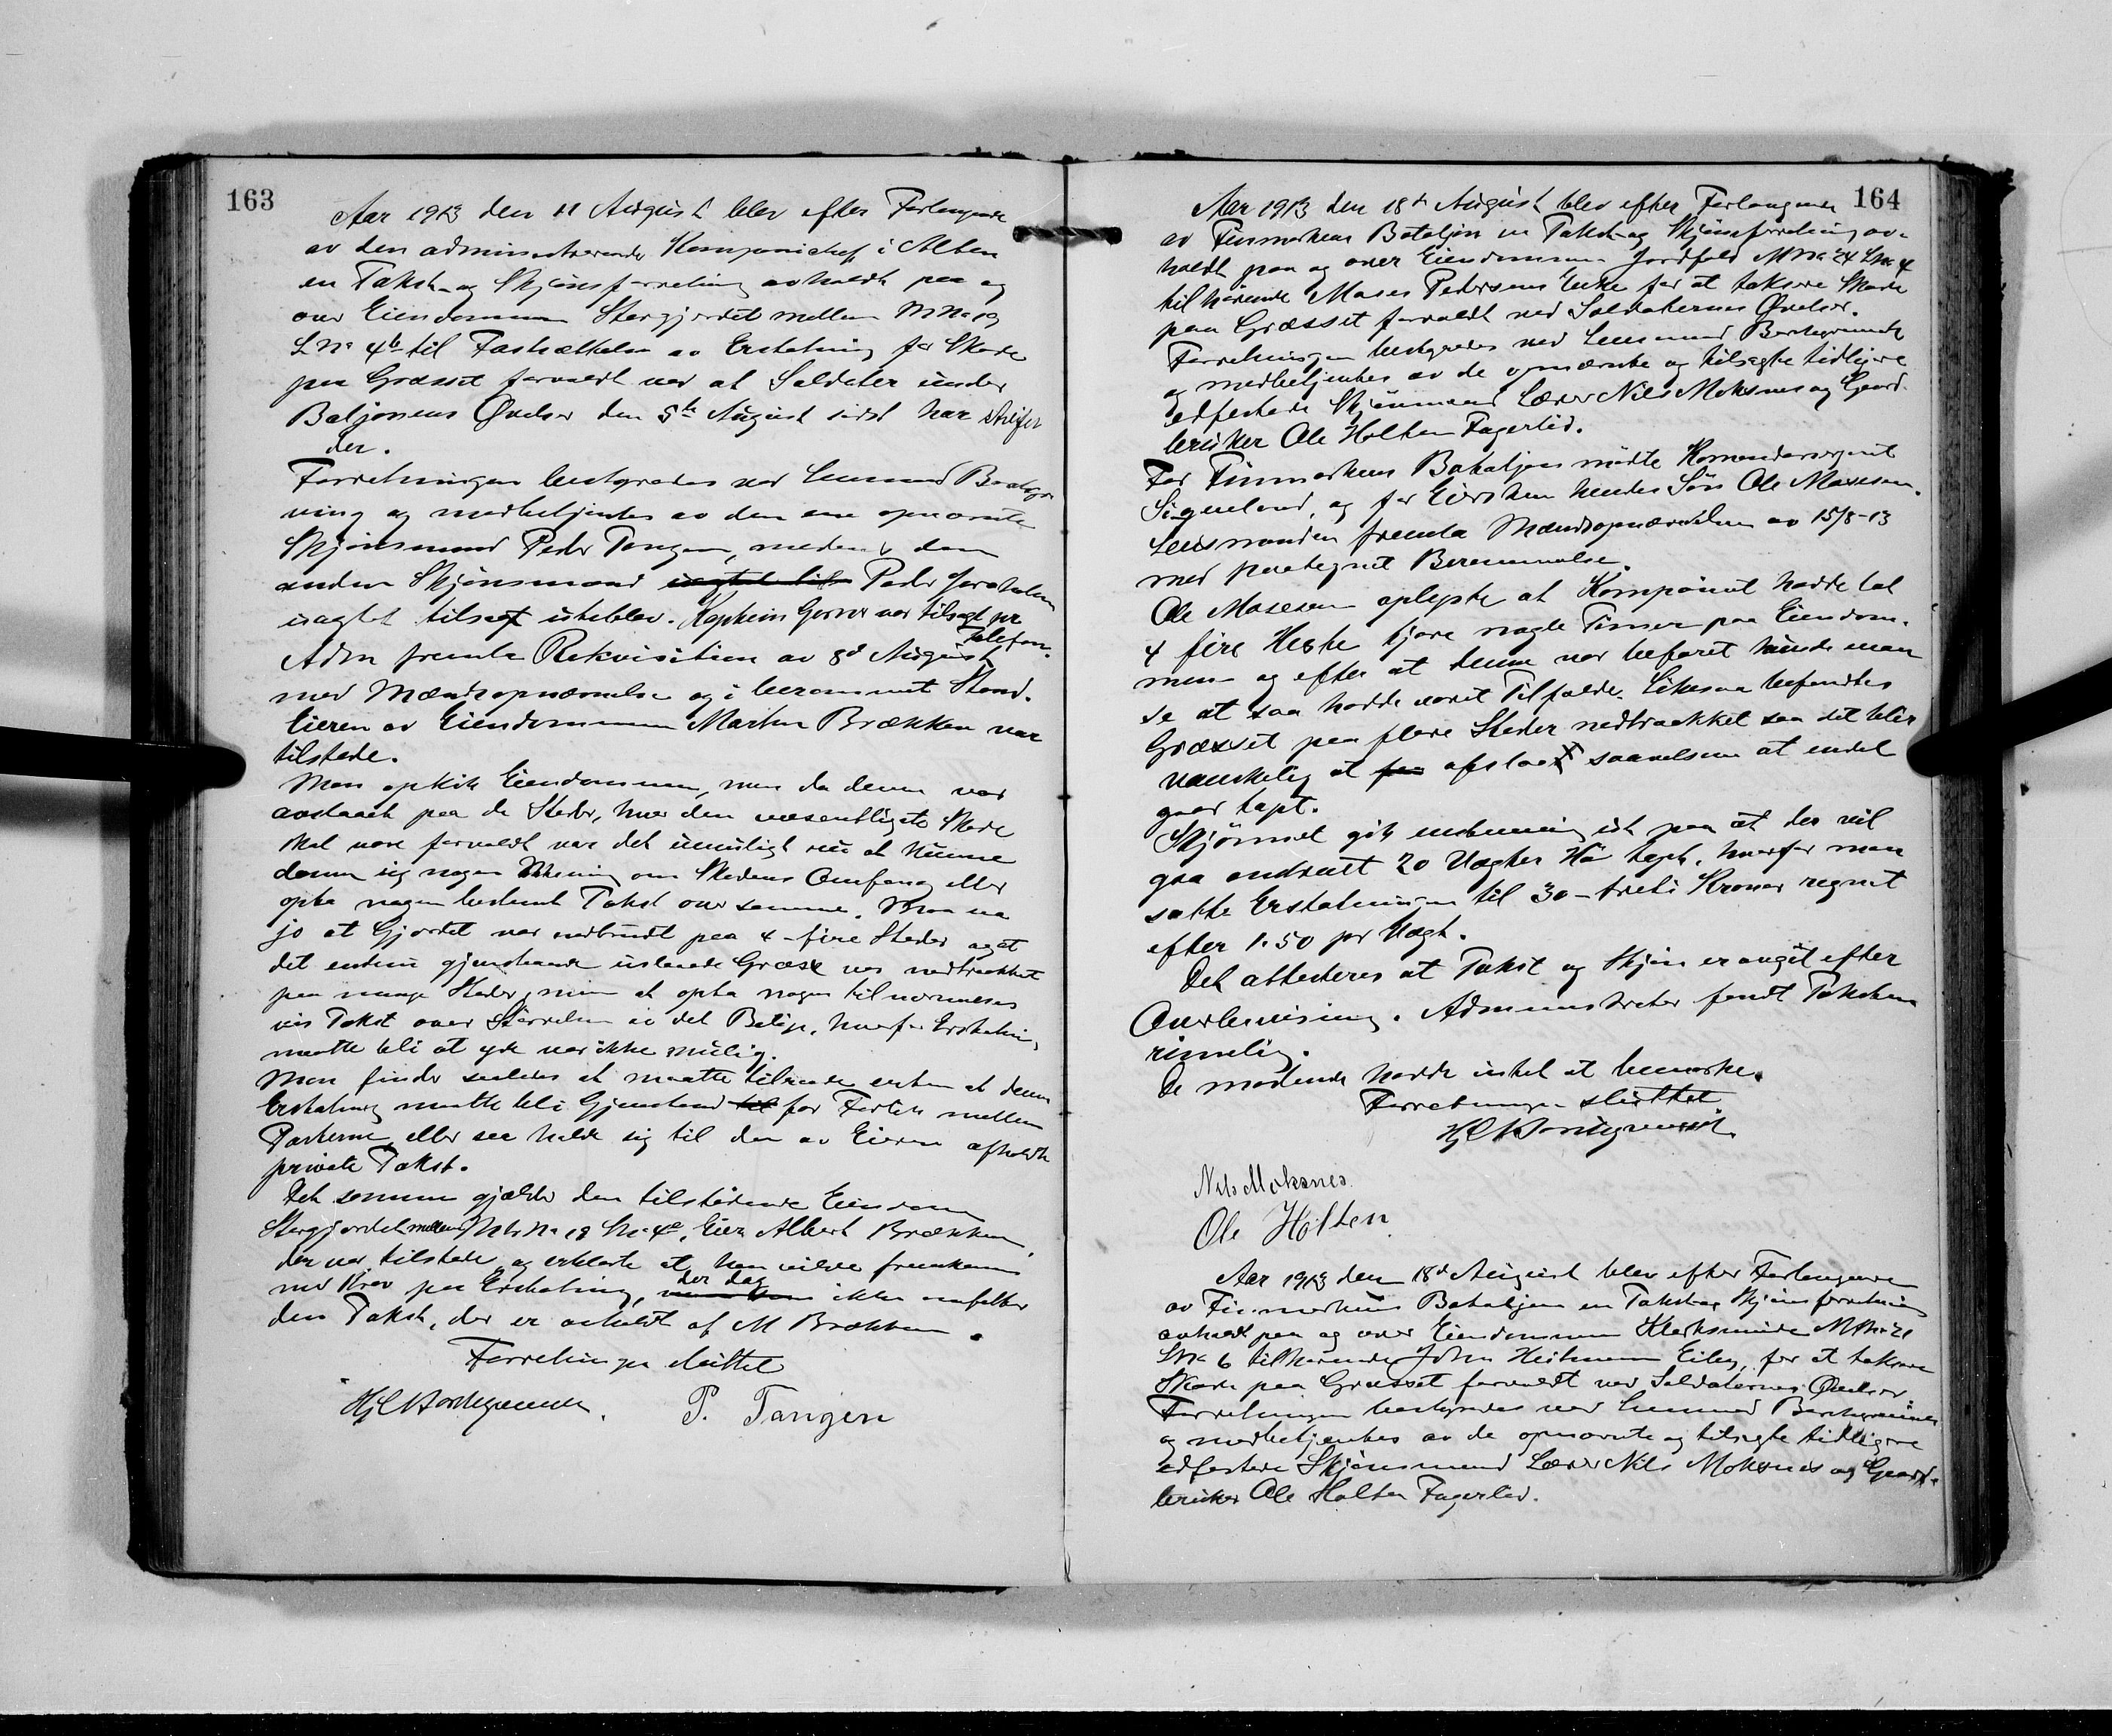 163
Aar 1913 den 11 August blev efter Forlangende
av den administrerende Kompanichef i Alten
en Takst- og Skjønsforretning avholdt paa og
over Eiendommen Storgjordet mellem M No 19
L No 4b til Fastsættelse av Erstatning for Skade
paa Græsset forvoldt ved at Soldater under
Baljonens Øvelser den 5te August sidst har
der.
Forretningen bestyredes ved Lensmand
ning og medbetjentes av den ene opnævnte
Skjønsmand Peder Tangen, medens den
anden Skjønsmand uagtet Peder
uagtet tilsagt uteblev. Kaptein var tilsagt pr
Telefon.
Adm fremla Rekvisition av 8d August
med Mændsopnævnelse og i berammet Stand.
Eieren av Eiendommen Martin Brækken var
tilstede.
Man opkik Eiendommen, men da denne var
avslaaet paa de Steder, hvor den væsentligste Skade
skal være forvoldt var det umuligt nu at kunne
danne sig nogen Mening om Skadens Omfang eller
opta nogen bestemt Takst over samme. Man saa
jo at Gjærdet var nedbrudt paa 4 - fire Steder og at
det endnu gjenstaaende uslaaede Græss var nedtraakket
paa mange Steder, men at opta nogen tilnærmelses
vis Takst over Størrelsen av det Beløp, hvorfor Erstatning
maatte bli at yde var ikke mulig.
Man finder saaledes at maatte tilraade enten at denne
Erstatning maatte bli Gjenstand til for Forlik mellem
Parterne, eller saa holde sig til den av Eieren afholdte
private Takst.
Det samme gjælder den tilstødende Eiendom
Storgjordet mellem M No 19 L No 4c, Eier Albert Brækken,
der var tilstede og erklærte at han vilde fremkomme
med Krav paa Erstatning, der dog ikke omfattes
den Takst, der er avholdt af M Brækken.
Forretningen sluttet
P. Tangen
164
Aar 1913 den 18d August blev efter Forlangende
av Finmarkens Bataljon en Takst og Skjønsforretning av-
holdt paa og over Eiendommen Jordfald M No 24 L No 4
tilhørende Moses Pedersens Enke for at taksere Skade
paa Græsset forvoldt ved Soldaternes Øvelser.
Forretningen bestyredes ved Lensmand
og medbetjentes av de opnævnte og tilsagte tidligere
edfæstede Skjønsmænd Lærer Nils Moksnes og Gaard-
bruker Ole Holten Fagerlid.
For Finmarkens Bataljon mødte Komandersergent
Signeland, og for Eiersken hendes Søn Ole Mosesen.
Lensmanden fremla Mændsopnævnelsen av 15/8-13
med paategnet Berammelse.
Ole Mosesen oplyste at Kompaniet hadde lat
4 fire Heste kjøre nogle Timer paa Eiendom-
men og efter at denne var befaret kunde man
se at saa hadde været Tilfælde. Likesaa befandtes
Græsset paa flere Steder nedtraakket saa det blir
vanskelig at faa afslaat saavelsom at endel
gaar tapt.
Skjønnet gik enstemmig ut paa at der vil
gaa omtrent 20 Vægter Hø tapt, hvorfor man
satte Erstatningen til 30 - treti Kroner regnet
efter 1.50 pr Vægt.
Det attesteres at Takst og Skjøn er avgit efter
Overbevisning. Administrator fandt Taksten
rimelig.
De mødende hadde intet at bemerke.
Forretningen sluttet
Nils Moksnes
Ole Holten
Aar 1913 den 18d August blev efter Forlangende
av Finmarkens Bataljon en Takst og Skjønsforretning
avholdt paa og over Eiendommen M No 21
L No 6 tilhørende John Heitmann Eiby, for at taksere
Skade paa Græsset forvoldt ved Soldaternes Øvelser
Forretningen bestyredes ved Lensmand
og medbetjentes av de opnævnte og tilsagte tidligere
edfæstede Skjønsmænd Lærer Nils Moksnes og Gaard-
bruker Ole Holten Fagerlid.